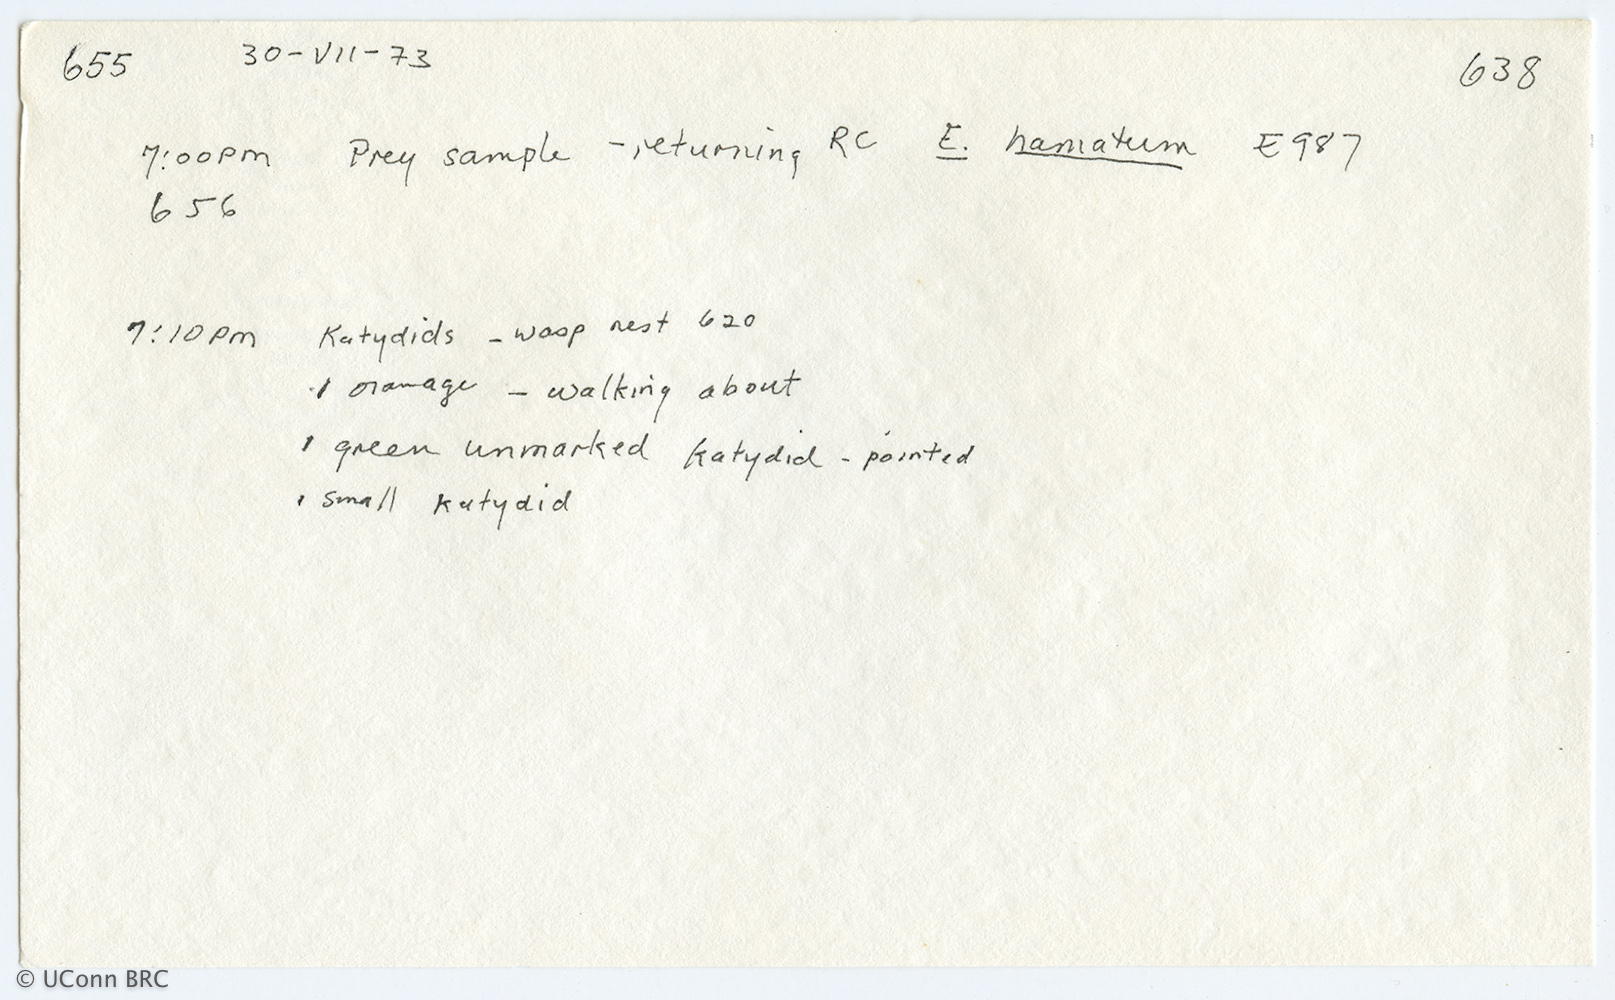 655 30-VII-73 638
7:00pm Prey sample - returning RC E. hamatum E987
656
7:10pm Katydids - wasp nest 620
1 oramage - walking about
1 green unmarked katydid - pointed
1 small katydid
© UConn BRC